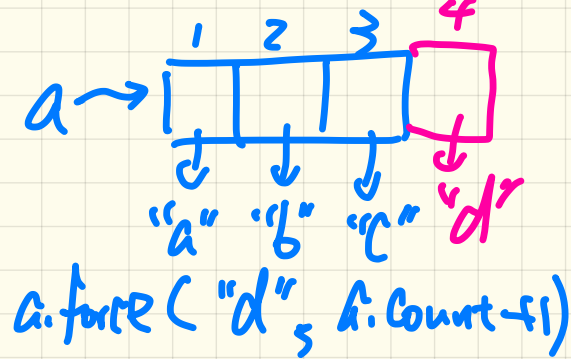 1 2 3 4
a
"a" "b" "c" "d"
a.force("d", a.count+1)